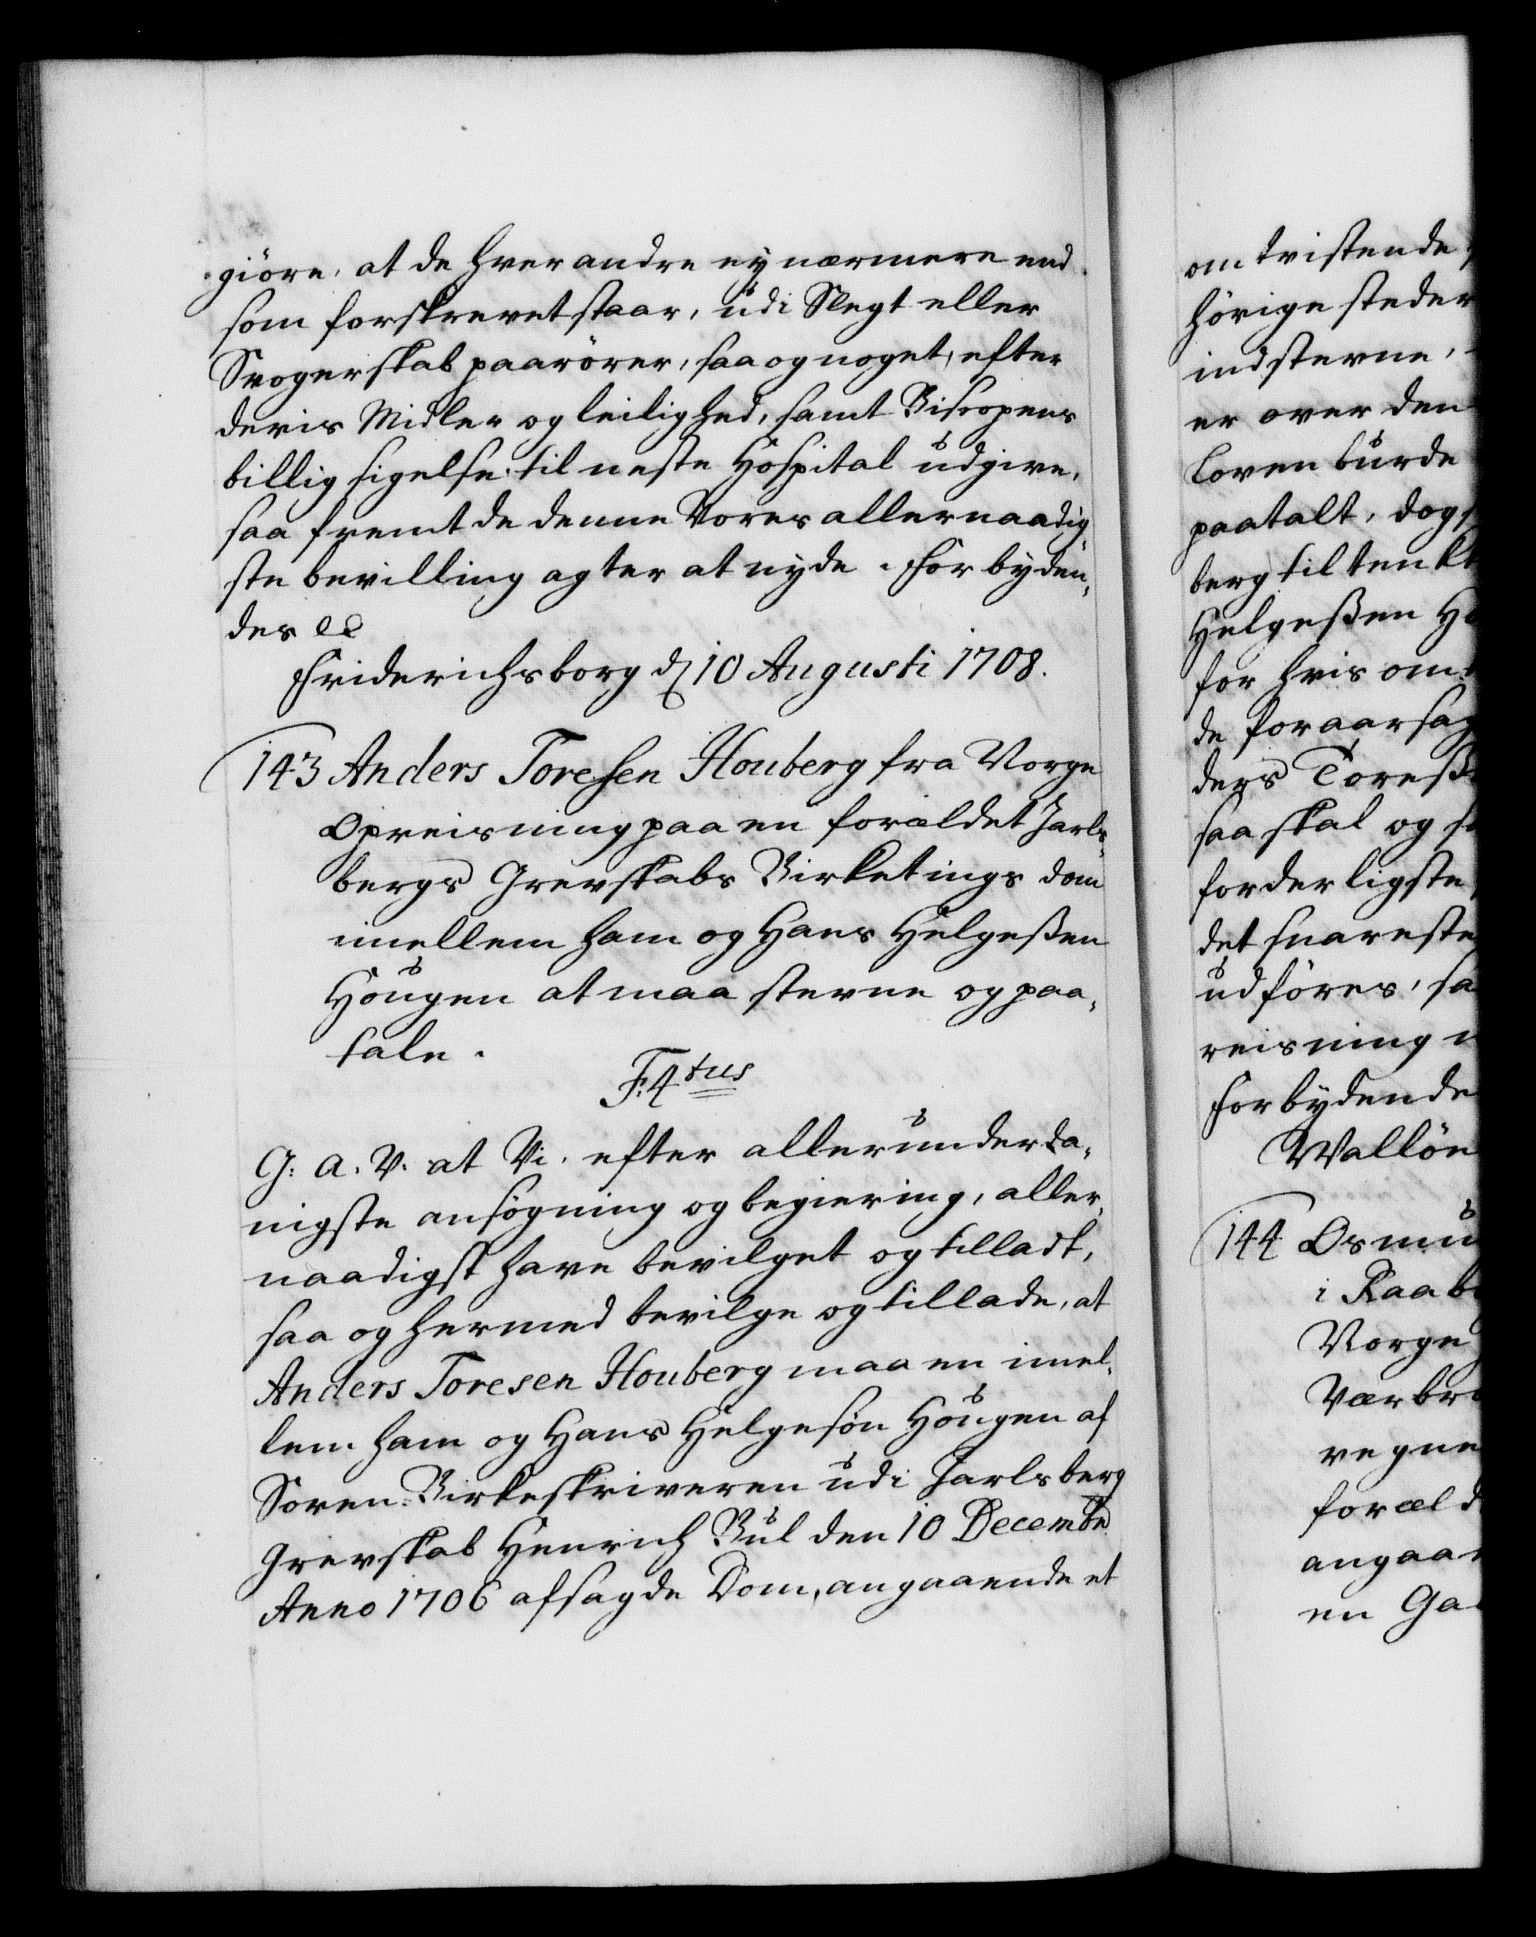 giöre, at de hver andre ey nærmere end
som forskrevet staar, udi Slegt eller
Svogerskab paarörer, saa og noget, efter
deris Midler og leilighed, samt Biscopens
billig sigelse til neste Hospital udgive,
saa fremt de denne Vores allernaadig,
ste bevilling agter at nyde. Forbyden,
des etc
Friderichsborg d 10 Augusti 1708.
143 Anders Toresen Houberg fra Norge
Opreisning paa en foraldet Jarls,
bergs Grevskabs Birketings dom
imellem ham og Hans Helgeßen
Hougen at maa stevne og paa,
tale.
F: 4tus
G: A. V. at Vi efter allerunderda,
nigste ansögning og begiering, aller,
naadigst have bevilget og tilladt,
saa og hermed bevilge og tillade, at
Anders Toresen Houberg maa en imel,
lem ham og Hans Helgesön Hougen af
Soren-Birkeskriveren udi Jarlsberg
Grevskab Henrich Bul den 10 Decembr
Anno 1706 afsagde Dom, angaaende et
om tvistende
hörige steder
indstevne,
er over den
Loven burde
paatalt, dog
berg tiltenkt
Helgeßen Ho
for hvis om
de foraarsag
ders Toreß
saa skal og s
forderligste
det snareste
udföres, sa
reisning
Forbydende
Wallöe
144 Osmu
i Raab
Norge
Værbr
regne
forald
angaa
en Ga